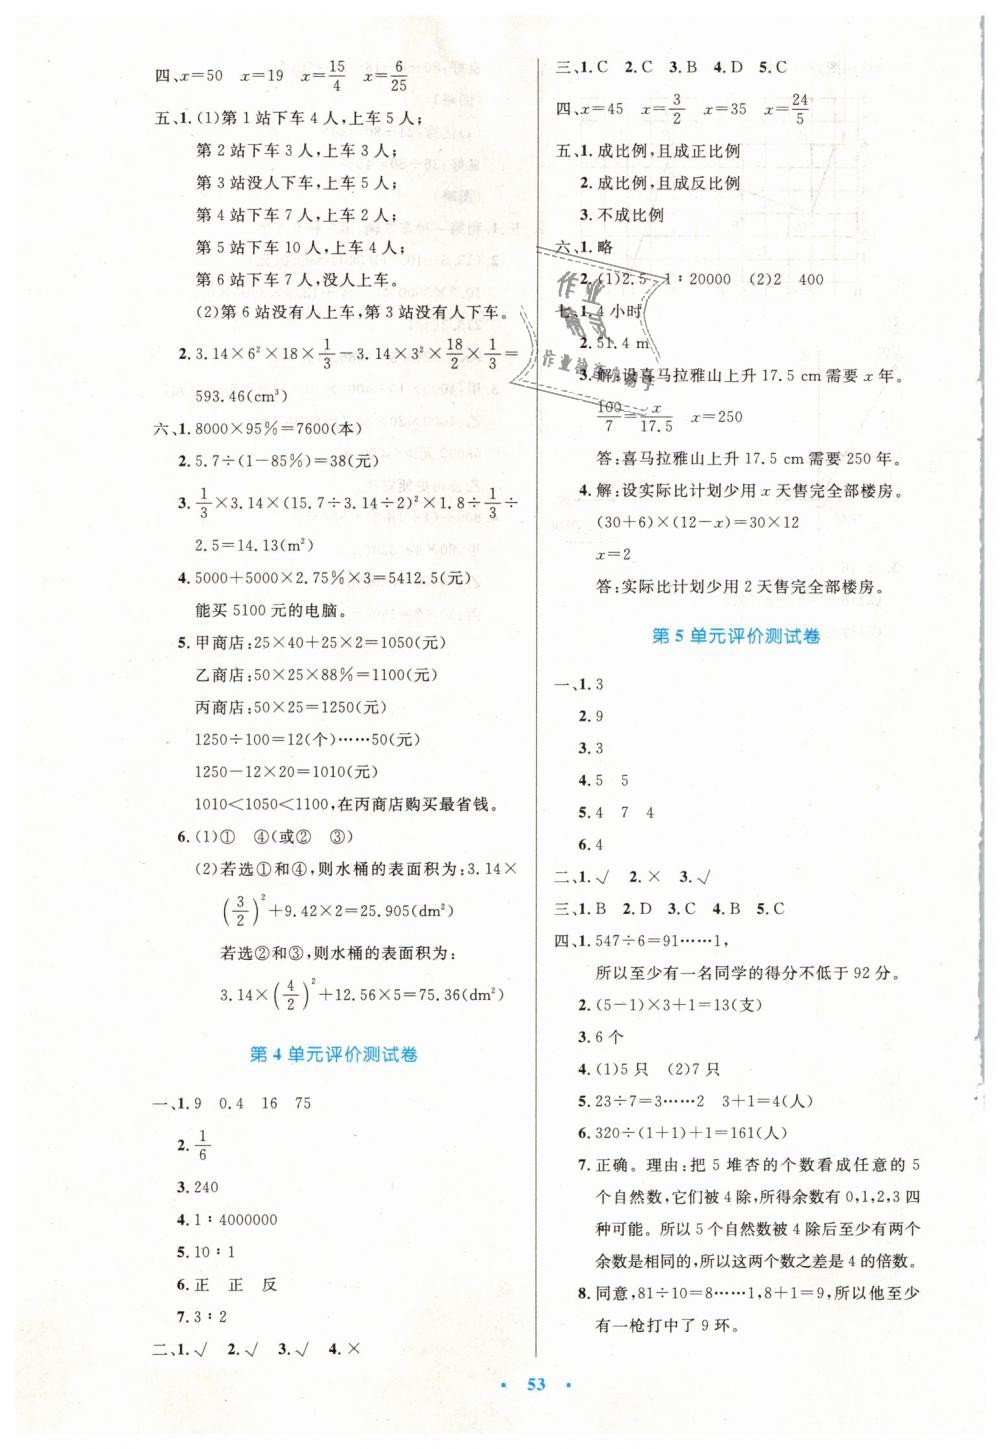 四、x=50 x=19 x=15/4 x=6/25
五、1.(1)第1站下车4人,上车5人;
第2站下车3人,上车3人;
第3站没人下车,上车5人;
第4站下车7人,上车2人;
第5站下车10人,上车4人;
第6站下车7人,没人上车。
(2)第6站没有人上车,第3站没有人下车。
2.3.14×6²×18×1/3-3.14×3²×18/2×1/3=
593.46(cm³)
六、1.8000×95%=7600(本)
2.5.7÷(1-85%)=38(元)
3.1/3×3.14×(15.7÷3.14÷2)²×1.8÷1/3÷
2.5=14.13(m²)
4.5000+5000×2.75%×3=5412.5(元)
能买5100元的电脑。
5.甲商店:25×40+25×2=1050(元)
乙商店:50×25×88%=1100(元)
丙商店:50×25=1250(元)
1250÷100=12(个)……50(元)
1250-12×20=1010(元)
1010<1050<1100,在丙商店购买最省钱。
6.(1)① ④(或② ③)
(2)若选①和④,则水桶的表面积为:3.14×
(3/2)²+9.42×2=25.905(dm²)
若选②和③,则水桶的表面积为:
3.14×(4/2)²+12.56×5=75.36(dm²)
第4单元评价测试卷
一、1.9 0.4 16 75
2.1/6
3.240
4.1∶4000000
5.10∶1
6.正 正 反
7.3∶2
二、1.√ 2.√ 3.√ 4.×
三、1.C 2.C 3.B 4.D 5.C
四、x=45 x=3/2 x=35 x=24/5
五、1.成比例,且成正比例
2.成比例,且成反比例
3.不成比例
六、1.略
2.(1)2.5 1∶20000 (2)2 400
七、1.4小时
2.51.4 m
3.解:设喜马拉雅山上升17.5 cm需要x年。
100/7=x/17.5 x=250
答:喜马拉雅山上升17.5 cm需要250年。
4.解:设实际比计划少用x天售完全部楼房。
(30+6)×(12-x)=30×12
x=2
答:实际比计划少用2天售完全部楼房。
第5单元评价测试卷
一、1.3
2.9
3.3
4.5 5
5.4 7 4
6.4
二、1.√ 2.× 3.√
三、1.B 2.D 3.C 4.B 5.C
四、1.547÷6=91……1,
所以至少有一名同学的得分不低于92分。
2.(5-1)×3+1=13(支)
3.6个
4.(1)5只 (2)7只
5.23÷7=3……2 3+1=4(人)
6.320÷(1+1)+1=161(人)
7.正确。理由:把5堆杏的个数看成任意的5
个自然数,它们被4除,所得余数有0,1,2,3四
种可能。所以5个自然数被4除后至少有两个
余数是相同的,所以这两个数之差是4的倍数。
8.同意,81÷10=8……1,8+1=9,所以他至少
有一枪打中了9环。
作业
精灵
• 53 •